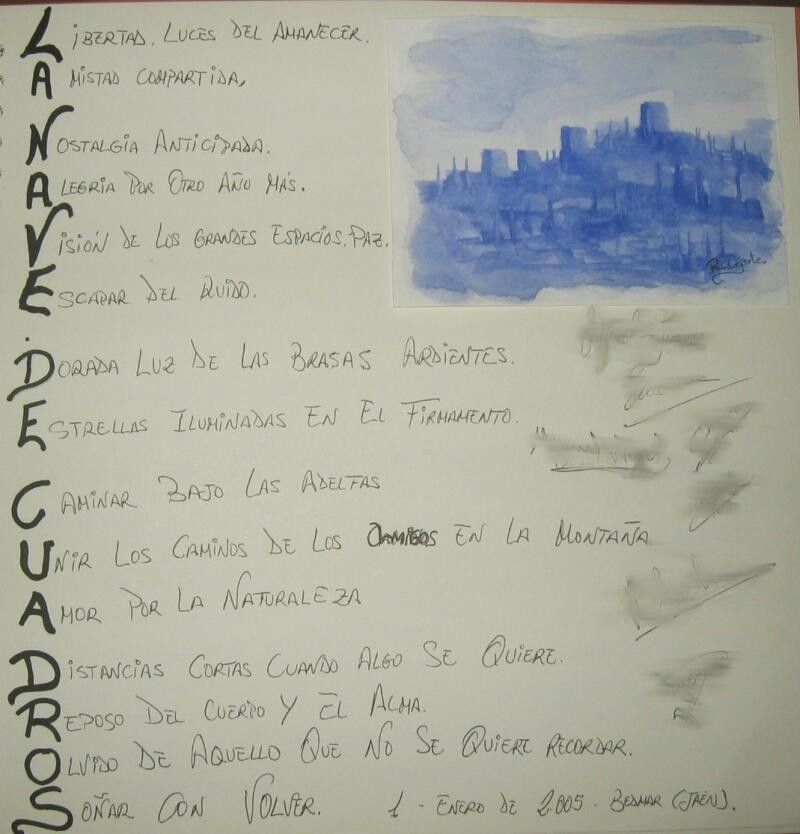 LIBERTAD. LUCES DEL AMANECER.
AMISTAD COMPARTIDA,
NOSTALGIA ANTICIPADA.
ALEGRIA POR OTRO AÑO MÁS.
VISIÓN DE LOS GRANDES ESPACIOS. PAZ.
ESCAPAR DEL RUIDO.
DORADA LUZ DE LAS BRASAS ARDIENTES.
ESTRELLAS ILUMINADAS EN EL FIRMAMENTO.
CAMINAR BAJO LAS ADELFAS
UNIR LOS CAMINOS DE LOS AMIGOS EN LA MONTAÑA
AMOR POR LA NATURALEZA
DISTANCIAS CORTAS CUANDO ALGO SE QUIERE.
REPOSO DEL CUERPO Y EL ALMA.
OLVIDO DE AQUELLO QUE NO SE QUIERE RECORDAR.
SOÑAR CON VOLVER. 1 - ENERO DE 2.005 - BEDMAR (JAÉN).